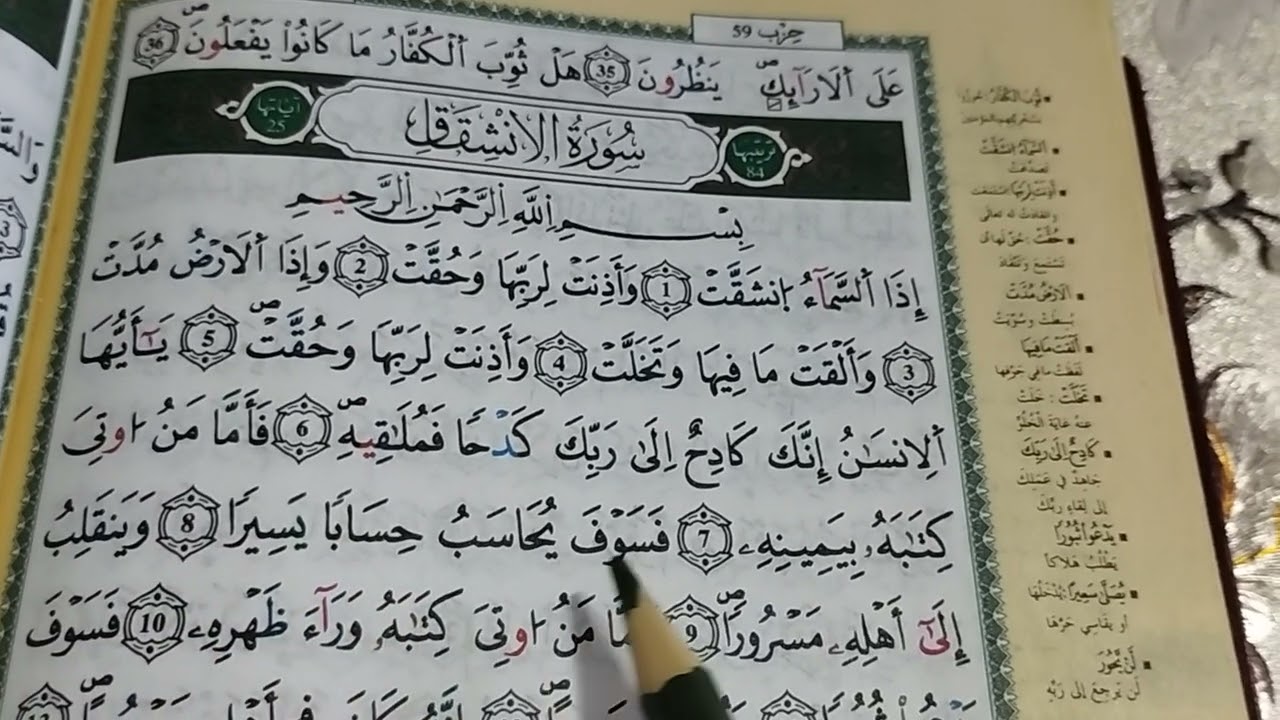 حِزْب 59
عَلَى اَ۬لَارَآئِكِ يَنظُرُونَ 35 هَلْ ثُوِّبَ اَ۬لْكُفَّارُ مَا كَانُواْ يَفْعَلُونَۖ 36
ترتيبها 84 سُورَةُ الِانْشِقَاقِ آياتها 25
بِسْمِ اِ۬للَّهِ اِ۬لرَّحْمَٰنِ اِ۬لرَّحِيمِ
إِذَا اَ۬لسَّمَآءُ اُ۪نشَقَّتْ 1 وَأَذِنَتْ لِرَبِّهَا وَحُقَّتْ 2 وَإِذَا اَ۬لَارْضُ مُدَّتْ
3 وَأَلْقَتْ مَا فِيهَا وَتَخَلَّتْ 4 وَأَذِنَتْ لِرَبِّهَا وَحُقَّتْۖ 5 يَٰٓأَيُّهَا
اَ۬لِانسَٰنُ إِنَّكَ كَادِحٌ اِلَىٰ رَبِّكَ كَدْحاٗ فَمُلَٰقِيهِۖ 6 فَأَمَّا مَنُ ا۟وتِيَ
كِتَٰبَهُۥ بِيَمِينِهِۦ 7 فَسَوْفَ يُحَاسَبُ حِسَاباٗ يَسِيراٗ 8 وَيَنقَلِبُ
إِلَىٰٓ أَهْلِهِۦ مَسْرُوراٗۖ 9 مَّا مَنُ ا۟وتِيَ كِتَٰبَهُۥ وَرَآءَ ظَهْرِهِۦ 10 فَسَوْفَ
السَّمَاءُ انْشَقَّتْ
تَصَدَّعَتْ
أَذِنَتْ لِرَبِّهَا
وانقادت له تعالى
حُقَّتْ : حُقّ لها أن
تستمع وتنقاد
الَارْضُ مُدَّتْ
بُسِطَتْ وسُوِّيَتْ
أَلْقَتْ مَا فِيهَا
لَفَظَتْ ما في جوفها
تَخَلَّتْ : خَلَتْ
عنه غاية الخُلُوّ
كَادِحٌ اِلَىٰ رَبِّكَ
جاهد في عملك
إلى لقاء ربّك
يَدْعُواْ ثُبُوراً
يَطْلُبُ هلاكاً
يُصَلَّىٰ سَعِيراً : يُدْخَلُها
أو يقاسي حرّها
لَّنْ يَّحُورَ
لن يرجع إلى ربّه